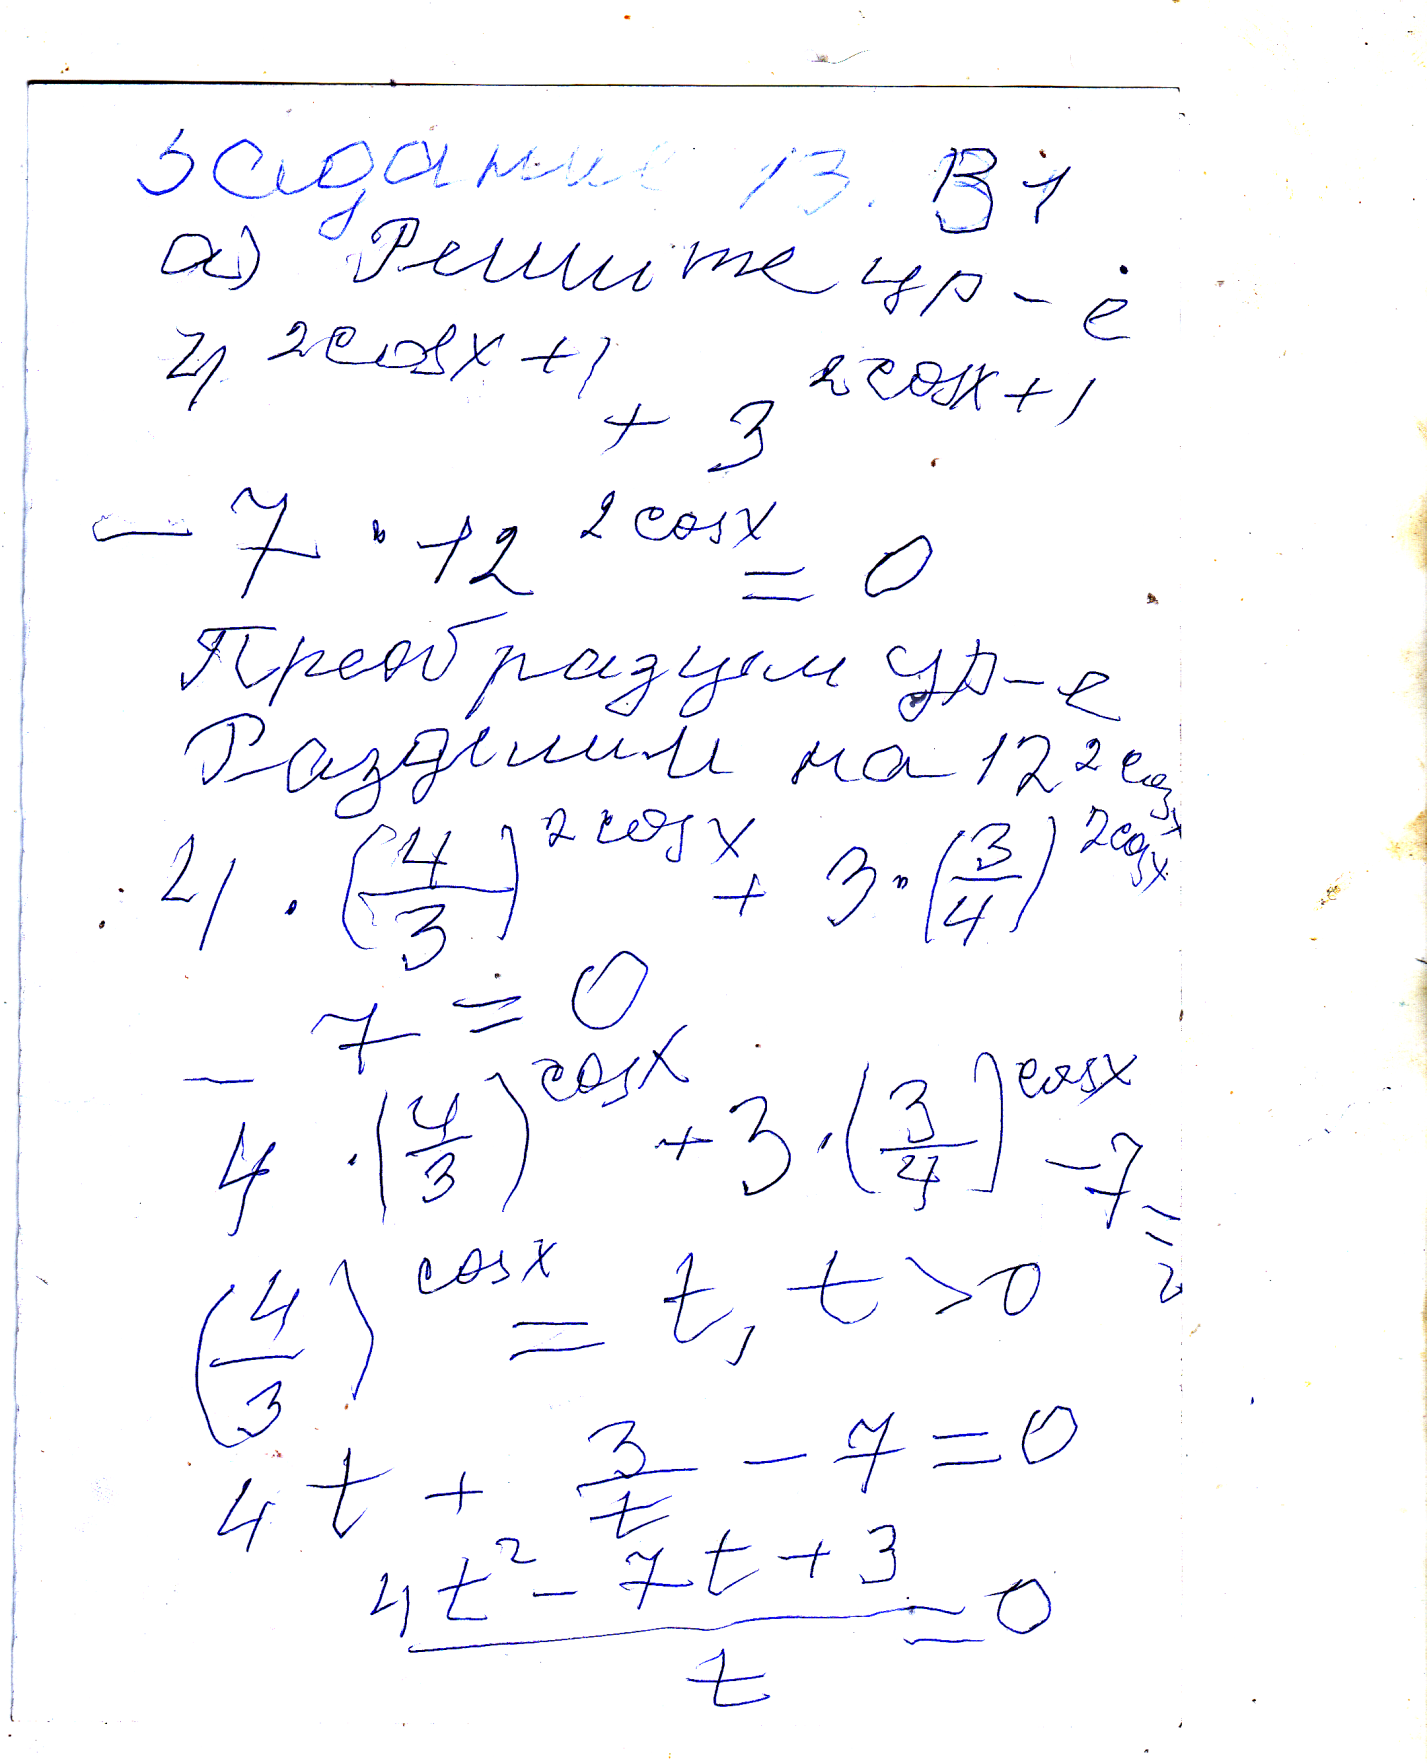 Задание 13. В1
а) Решите ур-е
4^{2cosx+1} + 3^{2cosx+1}
- 7 · 12^{2cosx} = 0
Преобразуем ур-е
Разделим на 12^{2cosx}
4 · (4/3)^{2cosx} + 3 · (3/4)^{2cosx}
- 7 = 0
4 · (4/3)^{cosx} + 3 · (3/4]^{cosx} - 7 =
(4/3)^{cosx} = t, t > 0
4t + 3/t - 7 = 0
(4t² - 7t + 3)/t = 0